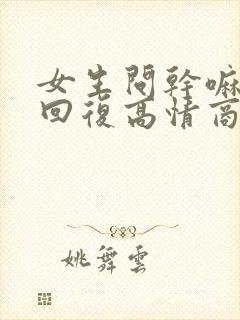 女生問幹嘛
回復高情商
姚舞雲